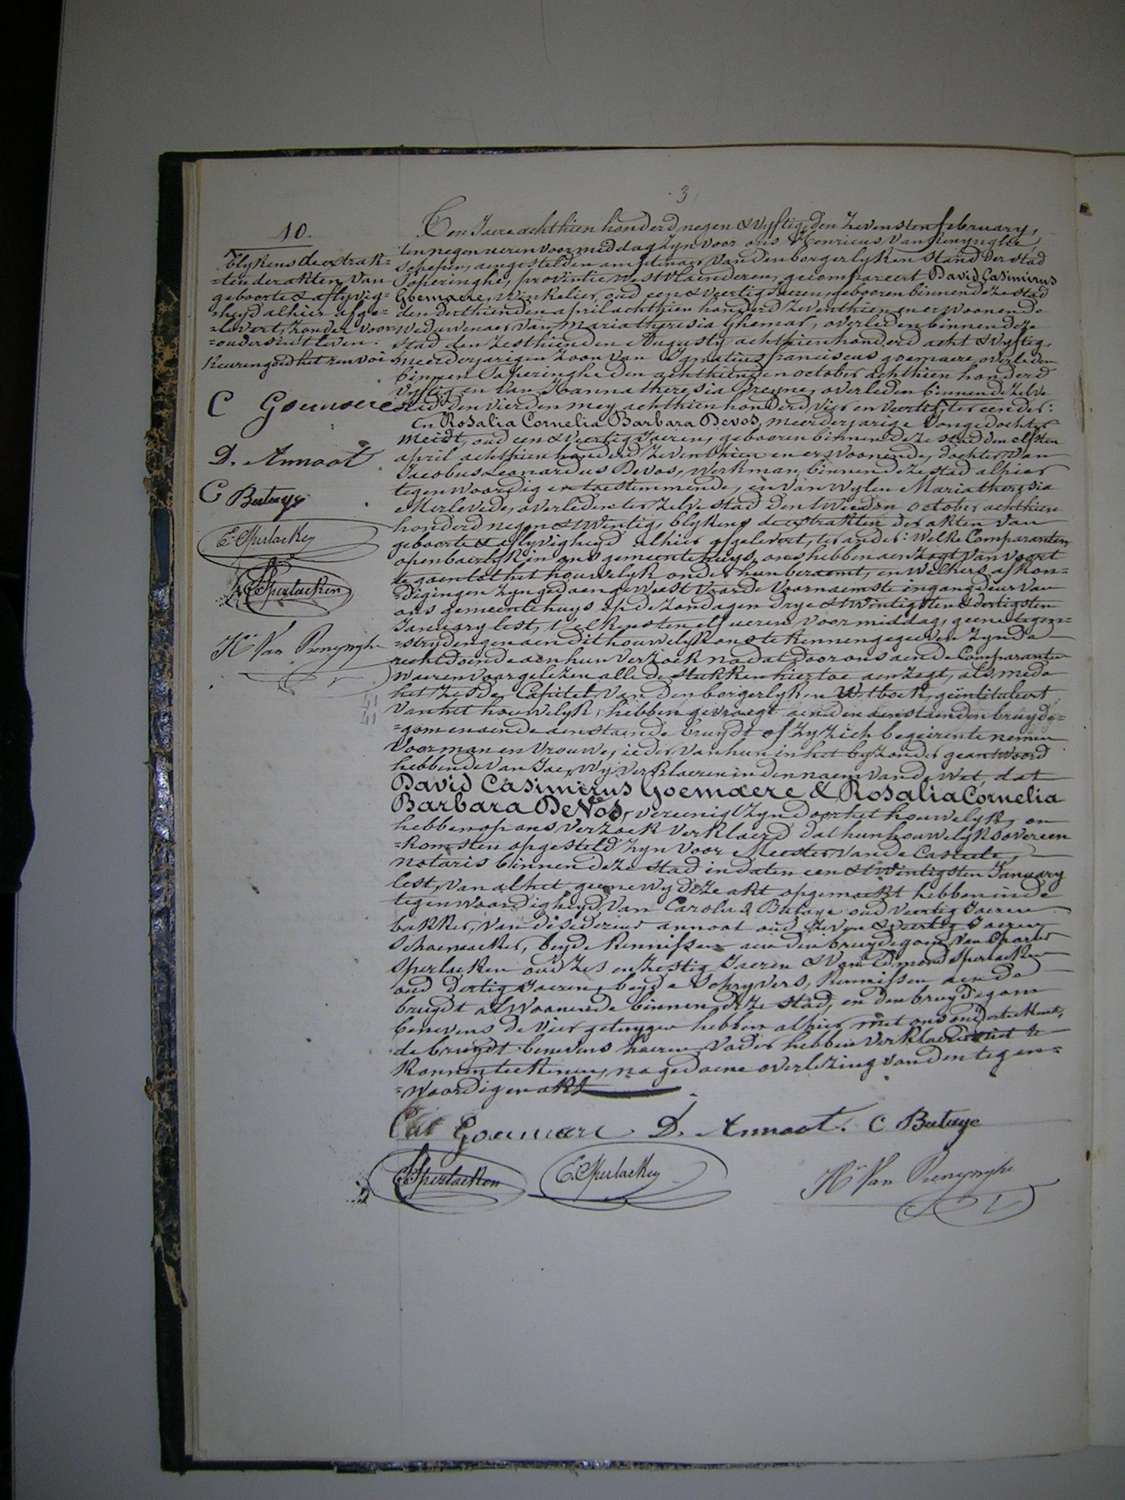 3
10.
Blykens de extrak-
-ten der akten van
geboorte & aflyvig-
-heyd alhier afge-
-levert, zonder voor-
-ouders uit leven.
Keuren goed het renvoi
C Goemaere
D. Annoot
C Butaye
E. Sperlacken
C. Sperlaeken
He Van Renynghe
Ten Jaere achthien honderd negen & vyftig, den zevensten february,
ten negen ueren voormiddag zyn voor ons Henricus Van Renynghe,
Schepen, aengestelden amptenaer van den borgerlyken stand der stad
Poperinghe, provintie West vlaenderen, gecompareert David Casimirus
Goemaere, Winkelier, oud een & veertig Jaeren, gebooren binnen deze stad
den derthienden april achthien honderd zeventhien en er woonende
Weduwenaer van Maria theresia Ghemar, overleden binnen deze
stad den zesthienden Augusty achthien honderd acht & vyftig,
meerderjarigen zoon van Ignatius franciscus goemaere, overleden
binnen Poperinghe den achthienden october achthien honderd
vyftig en van Joanna theresia Breyne, overleden binnen de zelve
stad den vierden mey achthien honderd vier en veertig ter eender:
En Rosalia Cornelia Barbara Devos, meerderjarige Jonge dochter
meidt, oud een & veertig Jaeren, gebooren binnen deze stad den elfsten
april achthien honderd zeventhien en er woonende, dochter van
Jacobus Leonardus DeVos, Werkman, binnen deze stad alhier
tegenwoordig en toestemmende, en van wylen Maria theresia
Merlevede, overleden ter zelve stad den tweeden october achthien
honderd negen & twintig, blykens de extrakten der akten van
geboorte & aflyvigheyd alhier afgelevert, ter ander: Welke Comparanten
openbaerlyk in ons gemeentehuys, ons hebben aenzogt van voort
te gaen tot het houwelyk onder hun beraemt, en welkers afkon-
-digingen zyn gedaen geweest voor de voornaemste ingangdeur van
ons gemeente huys op de zondagen drye & twintigsten & dertigsten
January lest, t'elkensten elf ueren voormiddag, geene tegen-
-strydingen aen dit houwelyk ons te kennen gegeven zynde
recht doende aen hun verzoek na dat door ons aen de Comparanten
waeren voorgelezen alle de stukken hier toe aenzegt, als mede
het zesde Capittel van den borgerlyken Wetboek, geintituleert
Van het houwelyk, hebben gevraegt aen den aenstaenden bruyde-
-gom en aen de aenstaende bruydt of zy zich begeirente nemen
voor man en vrouwe, ieder van hun in het byzonder geantwoord
hebbende van Jae, Wy verklaeren in den naem van de Wet, dat
David Casimirus Goemaere & Rosalia Cornelia
Barbara DeVos, vereenigt zyn door het houwelyk, en
hebben op ons verzoek verklaerd dat hun houwelyks overeen
-komsten opgesteld zyn voor Meester Van de Casteele,
notaris binnen deze stad in daten een & twintigsten January
lest, van al het geene wy deze akt opgemaekt hebben in de
tegenwoordigheyd van Carolus Butaye oud veertig Jaeren
bakker, van desiderius annoot oud zeven & veertig Jaeren
Schoenmaeker, beyde Kennissen aen den bruydegom van Charles
Sperlaeken oud zes en zestig Jaeren & van Edmond Sperlaeken
oud dertig Jaeren, beyde Schryvers, Kennissen aen de
bruydt al woonende binnen deze stad, en den bruydegom
benevens de vier getuygen hebben alhier met ons onderteekent,
de bruydt benevens haeren vader hebben verklaerd niet te
Konnen teekenen, na gedaene overlezing van den tegen-
-woordigen akt
Goemaere D. Annoot. C Butaye
C. Sperlaeken E. Sperlacken He Van Renynghe